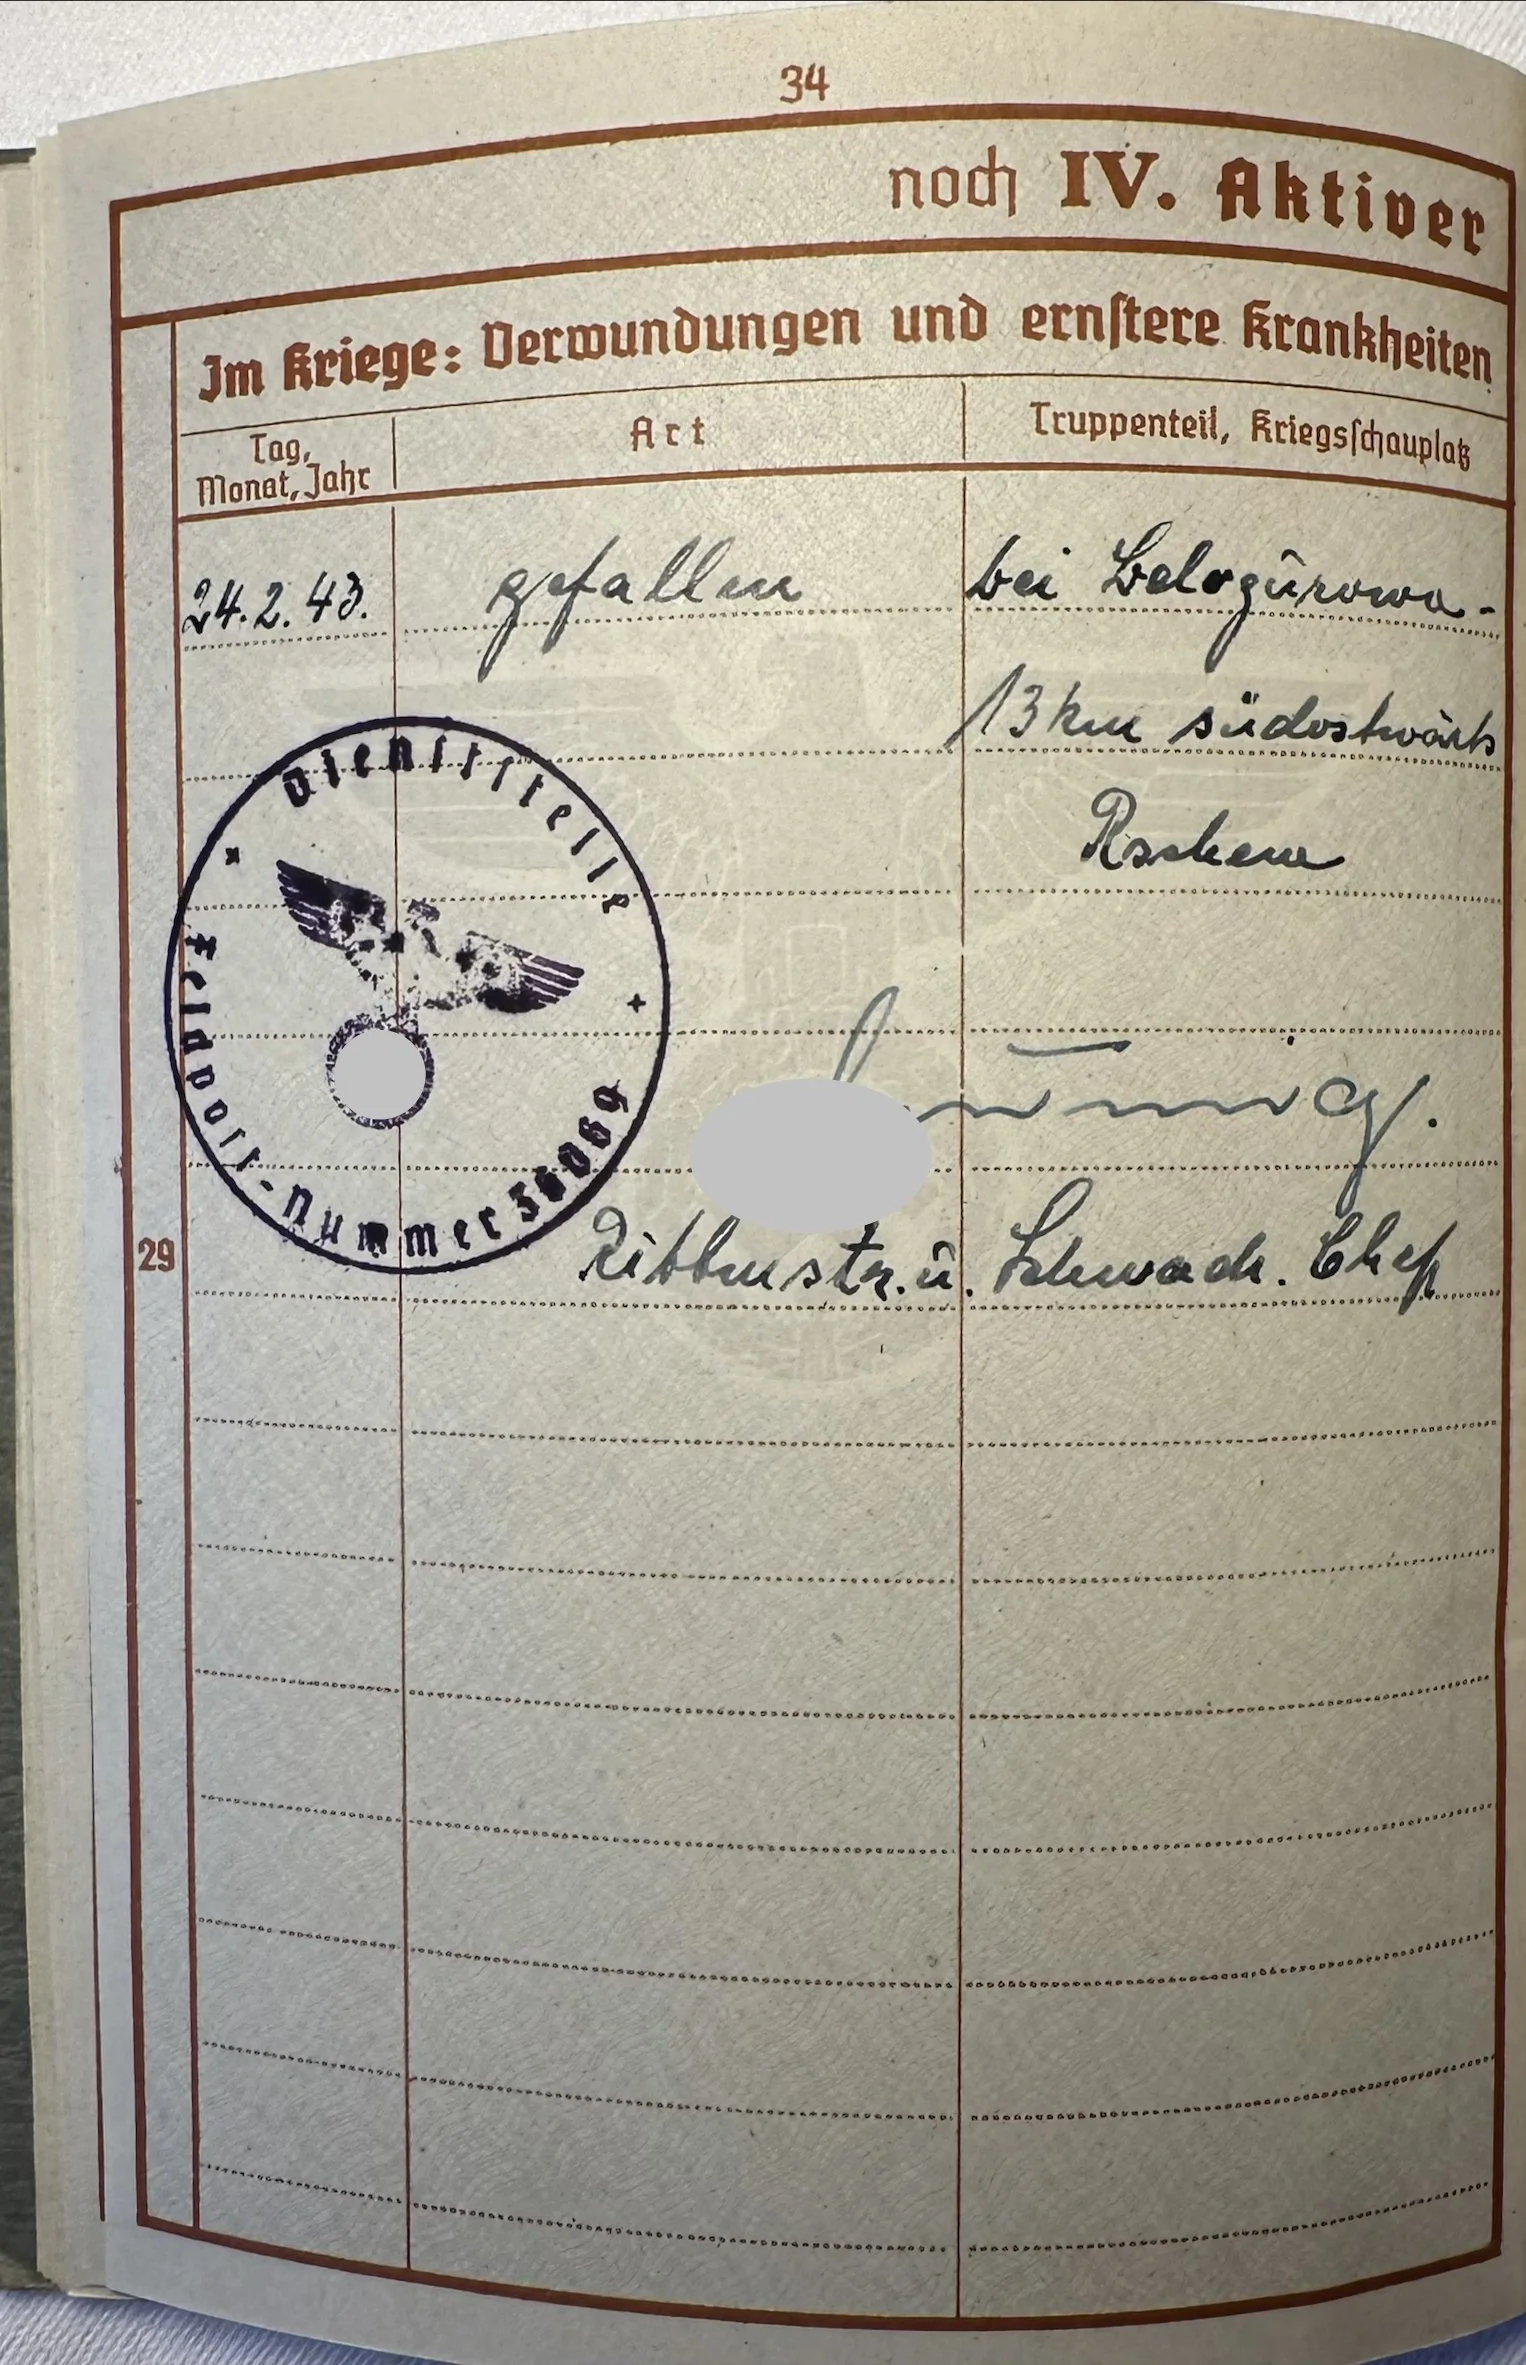 34
noch IV. Aktiver
Im Kriege: Verwundungen und ernstere Krankheiten
Tag,
Monat, Jahr
Art
Truppenteil, Kriegsschauplatz
24.2.43. gefallen bei Belogurowa-
13 km südostwärts
Rschew
Dienststelle
Feldpost-Nummer
29
Rittmstr. u. Schwadr. Chef